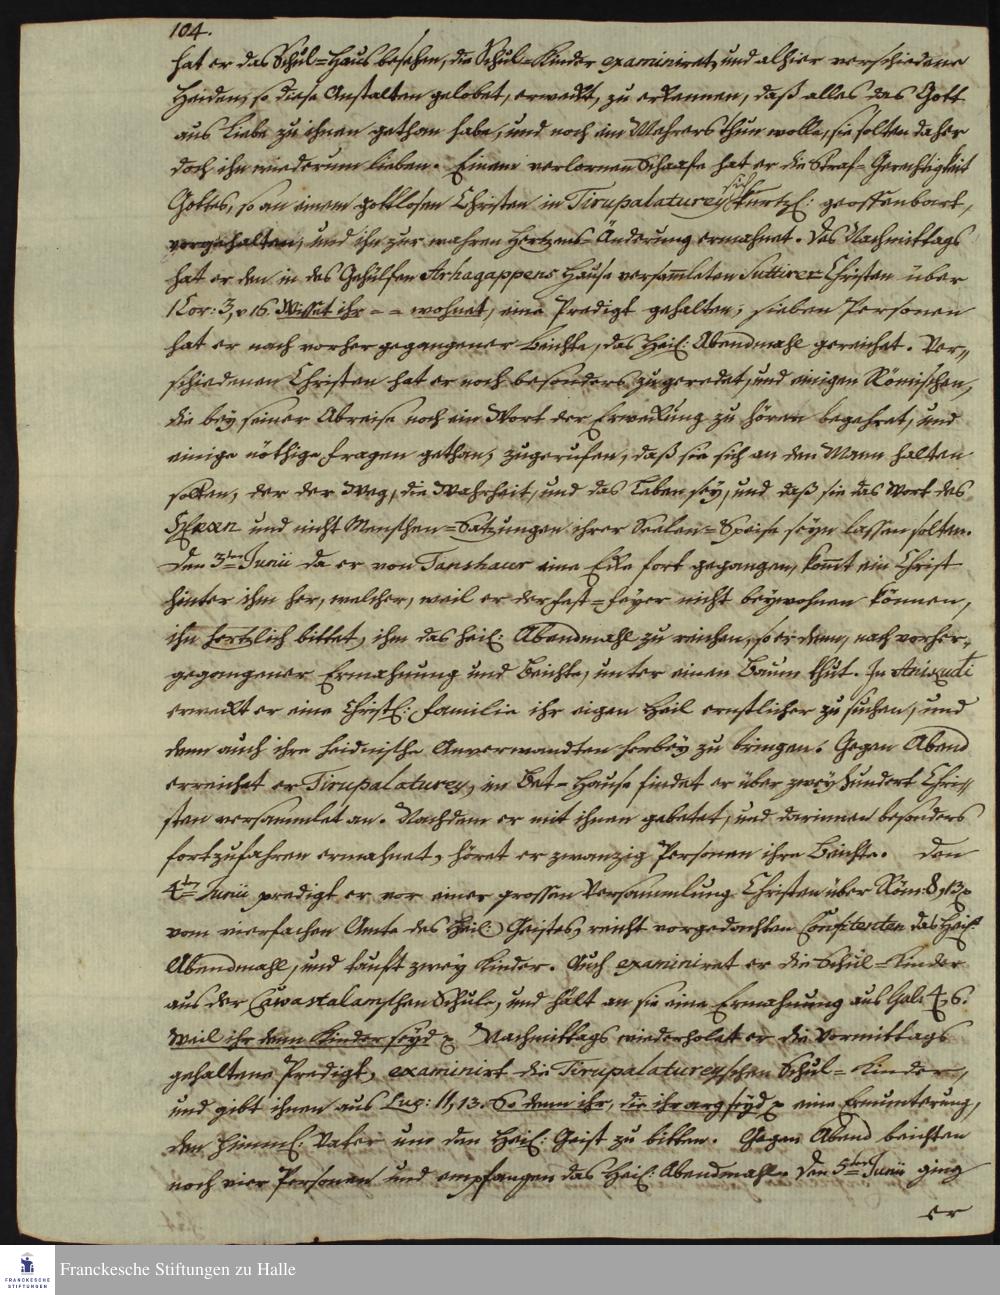 104.
hat er das Schul=Haus besehen, die Schul=Kinder examiniret, und alhier verschiedene
Heiden, so diese Anstalten gelobet, erweckt, zu erkennen, daß alles das Gott
aus Liebe zu ihnen gethan habe, und noch ein Mehrers thun wolle, sie solten daher
doch ihn wiederum lieben. Einem verlornen Schaafe hat er die Straf=Gerechtigkeit
Gottes, so an einem gottlosen Christen in Tirupalaturey sich kürtzl: geoffenbart,
vorgehalten, und ihn zur wahren Hertzens=Änderung ermahnet. Des Nachmittags
hat er den in des Gehülfen Arhagappens Hause versam̅leten Suttirer=Christen über
1 Cor: 3, v 16. Wisset ihr = = wohnet, eine Predigt gehalten; sieben Personen
hat er nach vorhergegangener Beichte, das Heil: Abendmahl gereichet. Ver=
schiedenen Christen hat er noch besonders zugeredet, und einigen Römischen,
die bey seiner Abreise noch ein Wort der Erweckung zu hören begehret, und
einige nöthige Fragen gethan, zugerufen, daß sie sich an den Mann halten
solten, der der Weg, die Wahrheit, und das Leben sey, und daß sie das Wort des
HErrn und nicht Menschen=Satzungen ihrer Seelen=Speise seyn lassen solten.
Den 3ten Junii da er von Tanshaur eine Ecke fort gegangen, kom̅t ein Christ
hinter ihm her, welcher, weil er der Fest=Feyer nicht beywohnen können,
ihn hertzlich bittet, ihm das Heil: Abendmahl zu reichen, so er denn, nach vorher=
gegangener Ermahnung und Beichte, unter einen Baum thut. In
erweckt er eine Christl: Familie ihr eigen Heil ernstlicher zu suchen, und
denn auch ihre heidnische Anverwandten herbey zu bringen. Gegen Abend
erreichet er Tirupalaturey, im Bet=Hause findet er über zwey hundert Chri=
sten versammlet an. Nachdem er mit ihnen gebetet, und darinnen besonders
fortzufahren ermahnet, höret er zwanzig Personen ihre Beichte. Den
4ten Junii predigt er vor einer grossen Versammlung Christen über Röm: 8,
vom vierfachen Amte des Heil: Geistes, reicht vorgedachten Confitenten das Heil:
Abendmahl, und tauft zwey Kinder. Auch examiniret er die Schul=Kinder
aus der Cawastalamschen Schule, und hält an sie eine Ermahnung aus Gal: 4, 6.
Weil ihr denn Kinder seyd Nachmittags wiederholet er die Vormittags
gehaltene Predigt, examinirt die Tirupalatureyschen Schul=Kinder,
und gibt ihnen aus Luc: 11, 13. So denn ihr, die ihr arg seyd eine Ermunterung,
den Himml: Vater um den Heil: Geist zu bitten. Gegen Abend beichten
noch vier Personen und empfangen das Heil: Abendmahl. Den 5ten Junii ging
er
FRANCKESCHE
STIFTUNGEN
Franckesche Stiftungen zu Halle